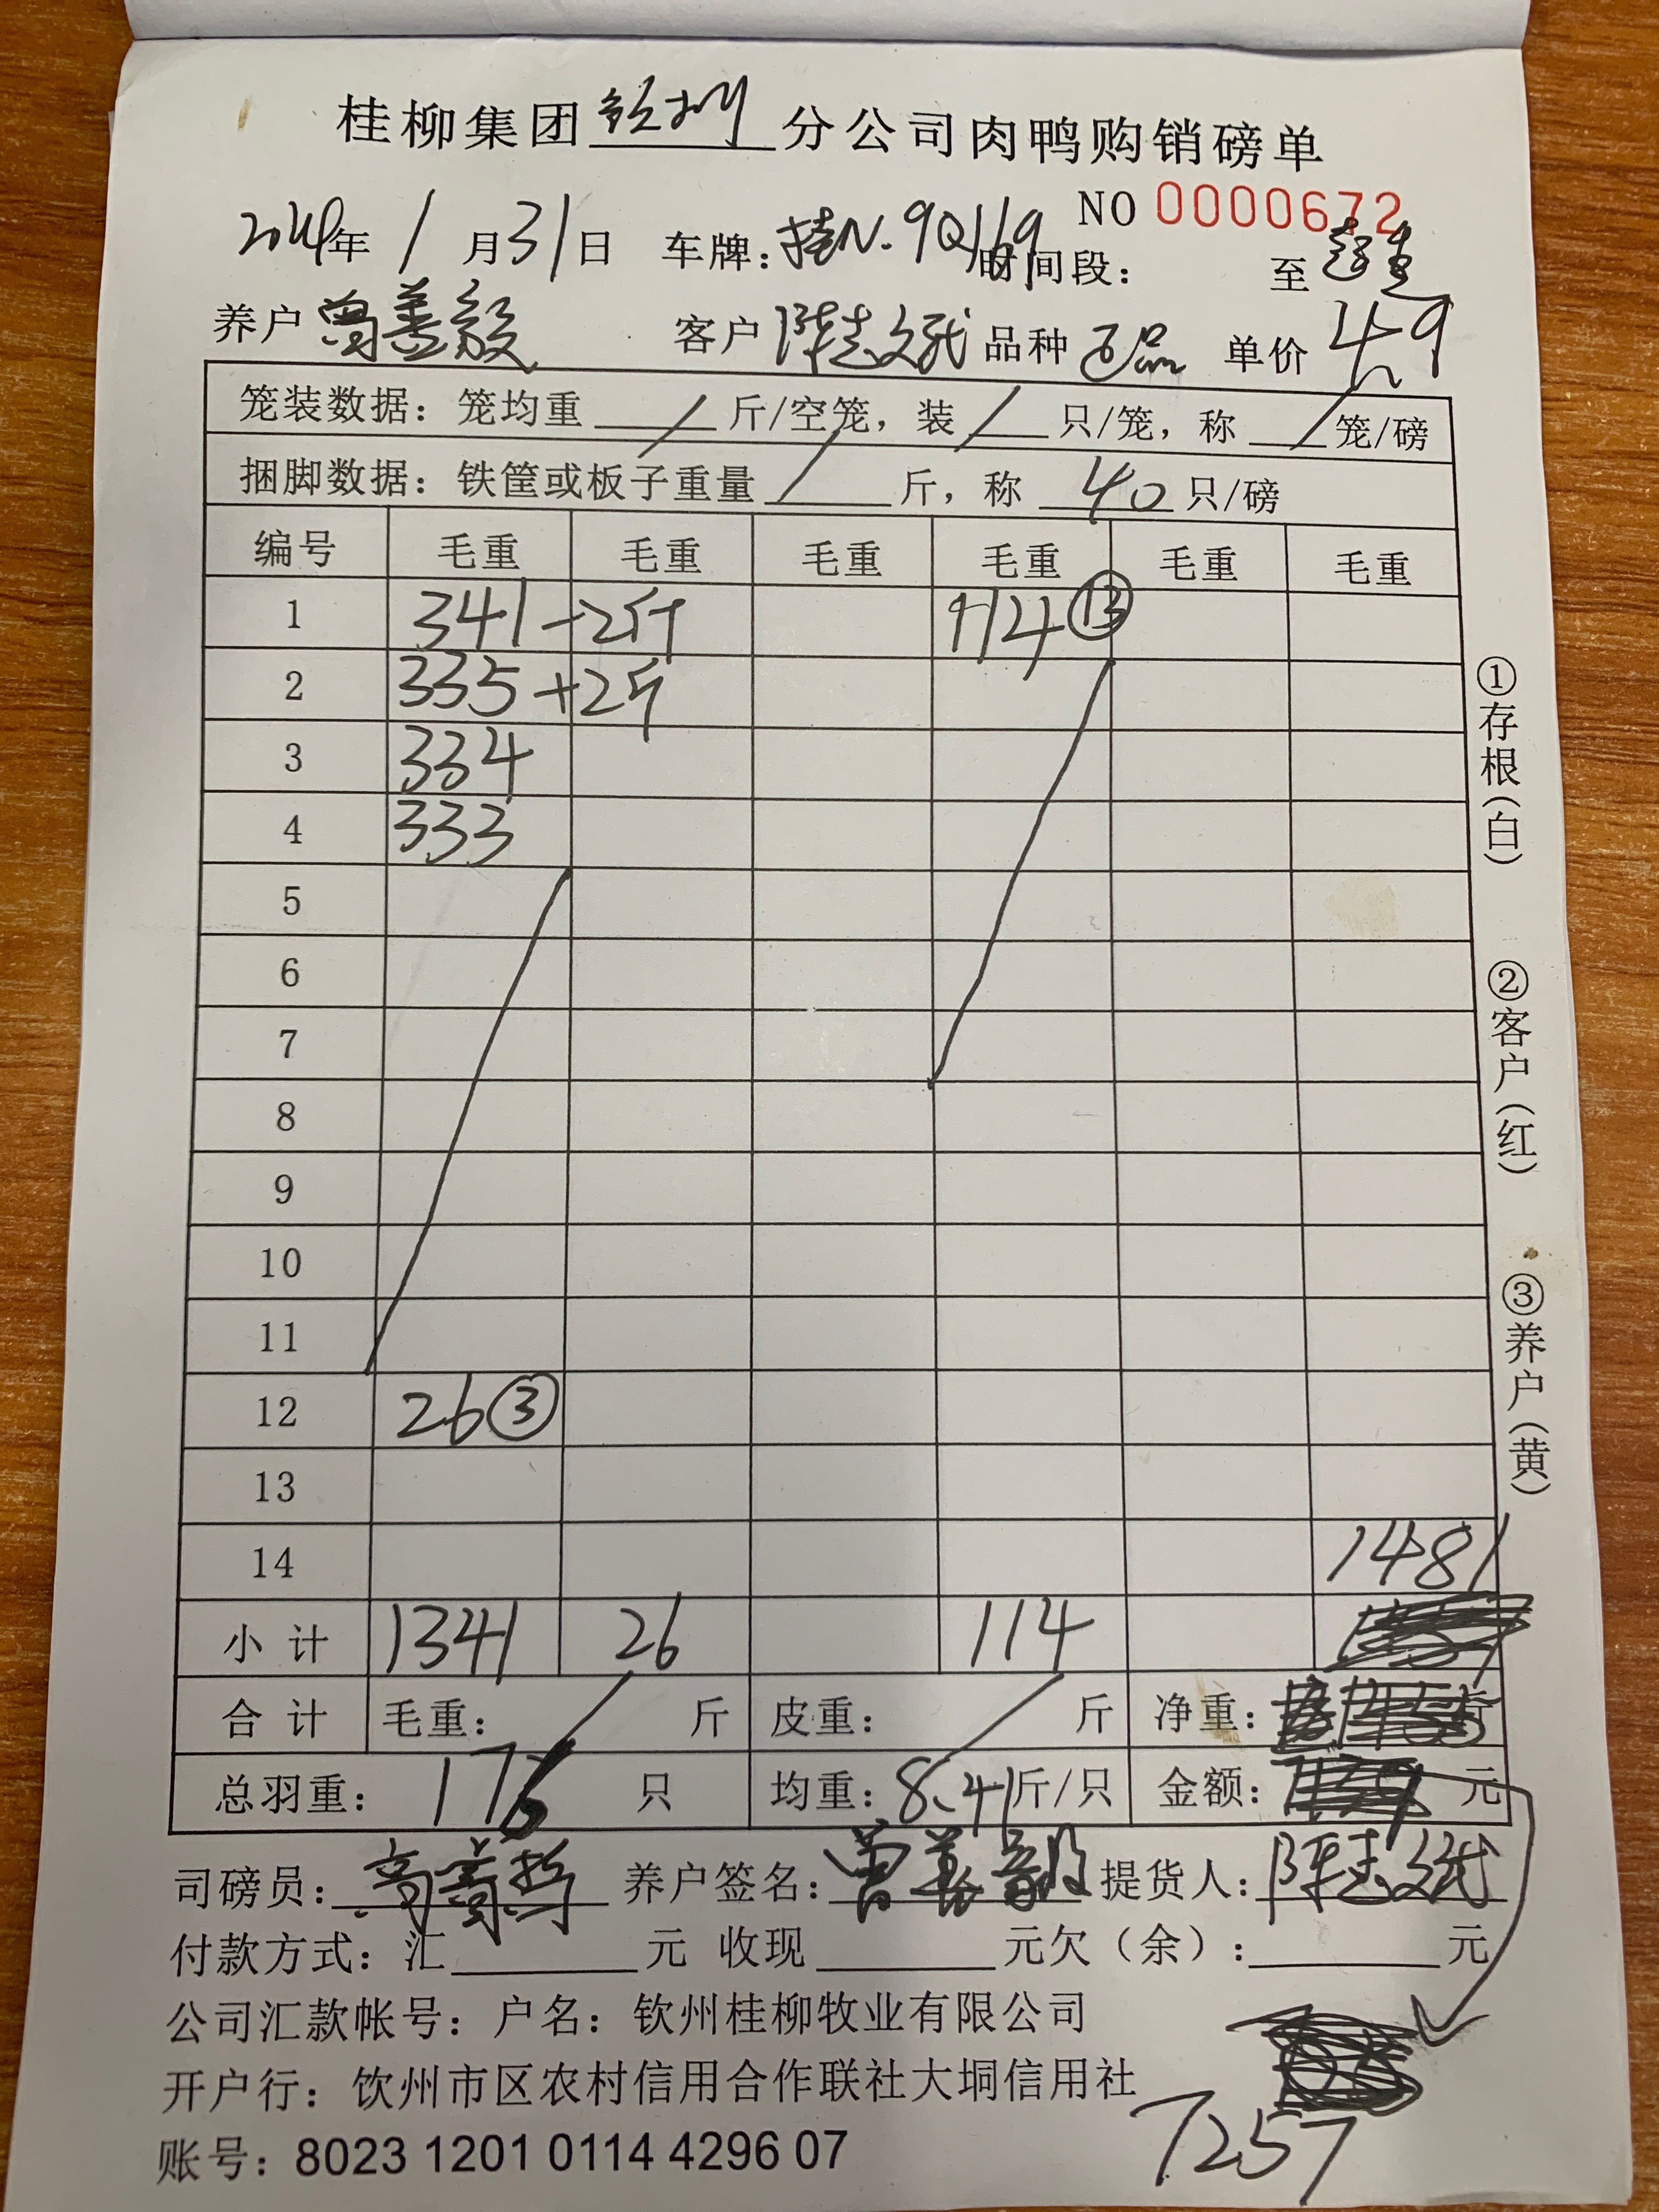 桂柳集团钦州分公司肉鸭购销磅单
NO 0000672
2024年1月31日 车牌:桂N.9Q119 时间段: 至
养户曾善毅 客户陈志斌 品种 单价4.9
笼装数据:笼均重/斤/空笼,装/只/笼,称/笼/磅
捆脚数据:铁筐或板子重量/斤,称40只/磅
编号 毛重 毛重 毛重 毛重 毛重 毛重
1 341-2斤 114⑬
2 335+2斤
3 334
4 333
5
6
7
8
9
10
11
12 26③
13
14 1481
小计 1341 26 114
合计 毛重: 斤 皮重: 斤 净重: 斤
总羽重: 176只 均重:8.41斤/只 金额: 元
司磅员: 养户签名:曾善毅 提货人:陈志斌
付款方式:汇 元 收现 元欠(余): 元
公司汇款帐号:户名:钦州桂柳牧业有限公司
开户行:钦州市区农村信用合作联社大垌信用社
7257
账号:8023 1201 0114 4296 07
①存根(白)
②客户(红)
③养户(黄)